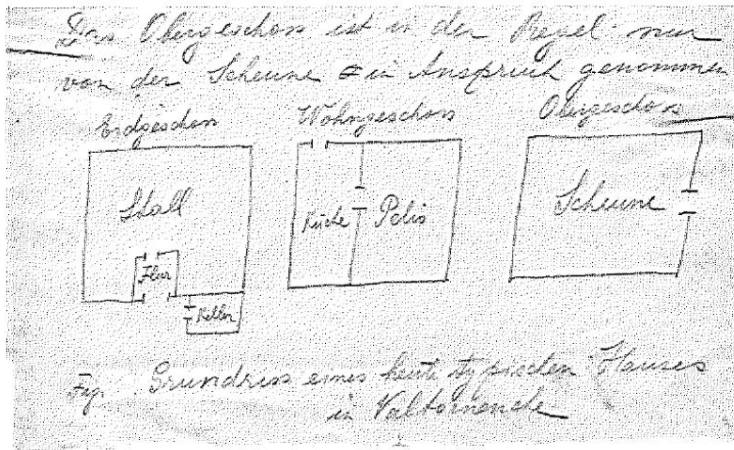 Das Obergeschoss ist in der Regel nur
von der Scheune in Anspruch genommen
Erdgeschoss Wohngeschoss Obergeschoss
Stall Küche Pelis Scheune
Flur
Keller
Fig. Grundriss eines heute typischen Hauses
in Valtornenche